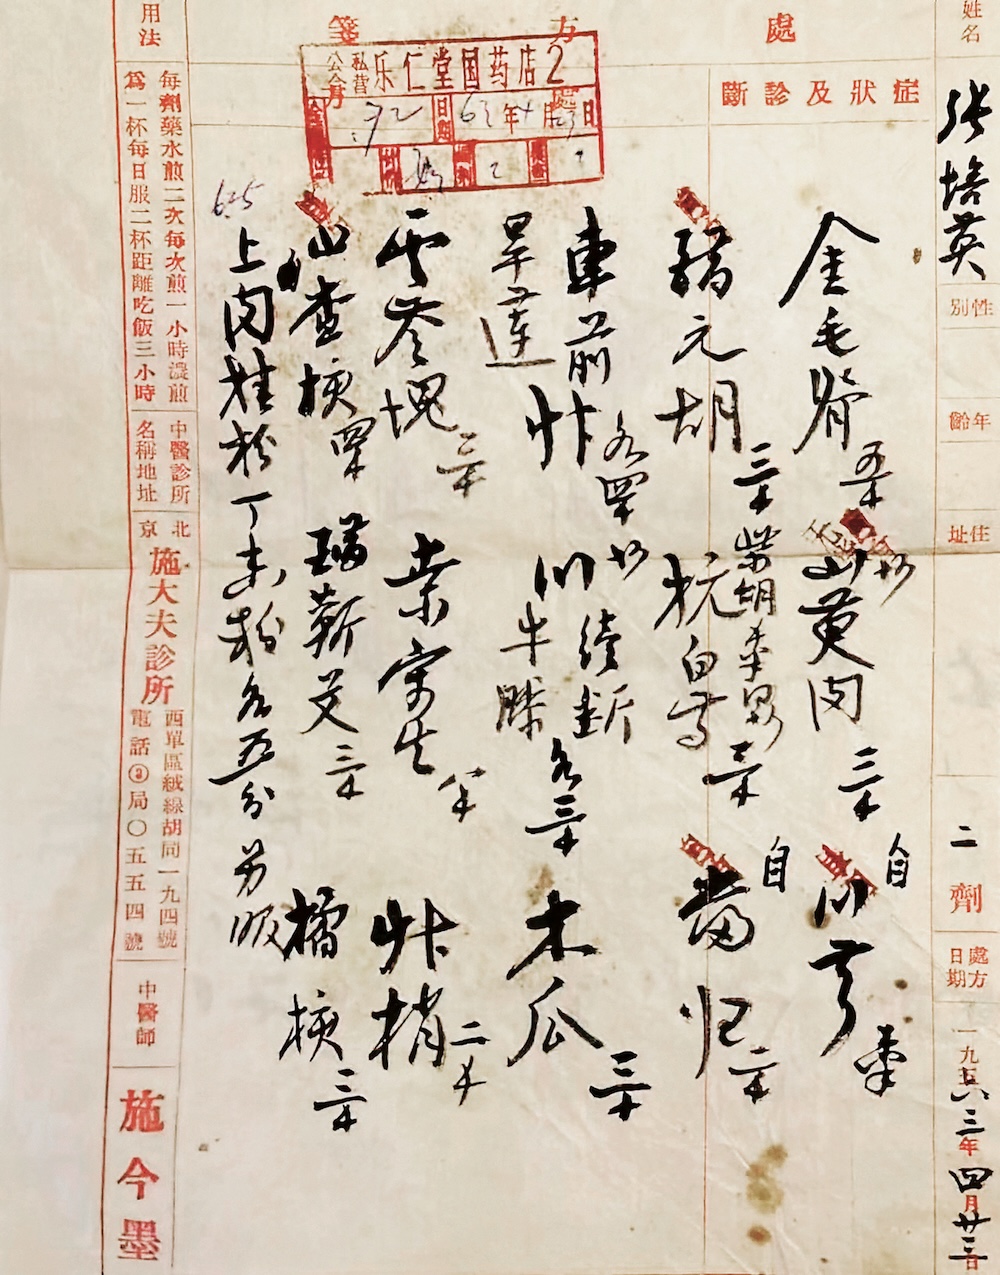 處方箋
姓名 张培英
性別
年齡
住址
二劑
處方日期
一九六三年四月廿三日
症狀及診斷
公私合营 乐仁堂国药店2
日期 63年4月23日
金毛脊 五钱
山萸肉 三钱
自
川芎 钱半
醋元胡 三钱
柴胡
杭白芍 三钱
自
当归 二钱
車前草
旱莲草 各四钱
川续断
川牛膝 各三钱
木瓜 三钱
云苓块 三钱
桑寄生 八钱
草梢 二钱
山查核 四钱
蕲艾 三钱
橘核 三钱
上肉桂粉 丁香粉各五分 另服
用法
每劑藥水煎二次每次煎一小時濃煎
為一杯每日服二杯距離吃飯三小時
中醫診所
名稱地址
北京
施大夫診所
西單區絨線胡同一九四號
電話③局〇五五四號
中醫師
施今墨